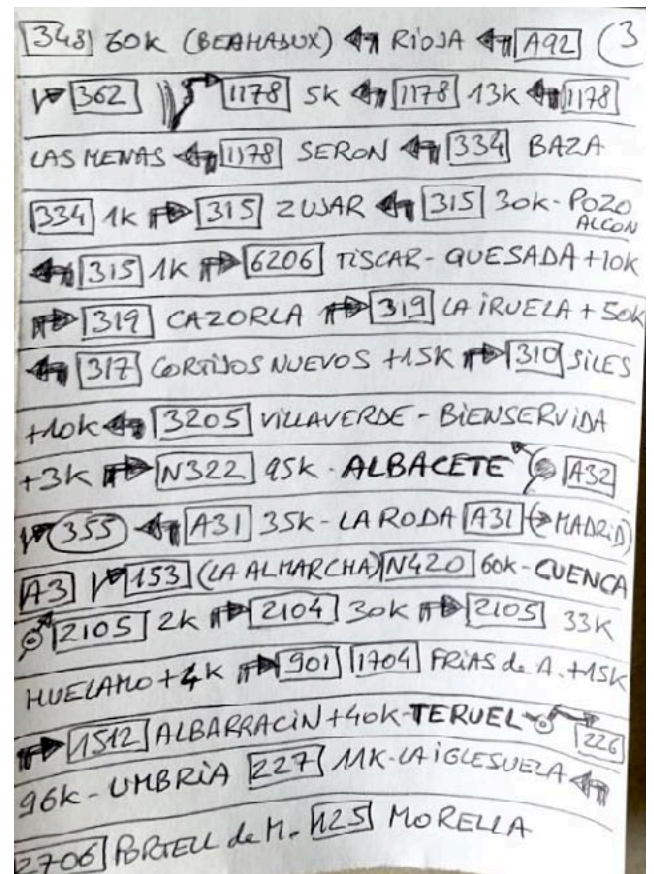 348 60K (BENAHADUX) RIOJA A92 (3
362 1178 5K 1178 13K 1178
LAS MENAS 1178 SERON 334 BAZA
334 1K 315 ZUJAR 315 30K-POZO ALCON
315 1K 6206 TISCAR - QUESADA +10K
319 CAZORLA 319 LA IRUELA + 50K
317 CORTIJOS NUEVOS +15K 310 SILES
+10K 3205 VILLAVERDE - BIENSERVIDA
+3K N322 95K - ALBACETE A32
355 A31 35K - LA RODA A31 (→ MADRID)
A3 153 (LA ALMARCHA) N420 60K - CUENCA
2105 2K 2104 30K 2105 33K
HUELAMO + 4K 901 1704 FRIAS de A. +15K
1512 ALBARRACIN +40K-TERUEL 226
96K - UMBRIA 227 11K - LA IGLESUELA
2706 PORTELL de M. 125 MORELLA